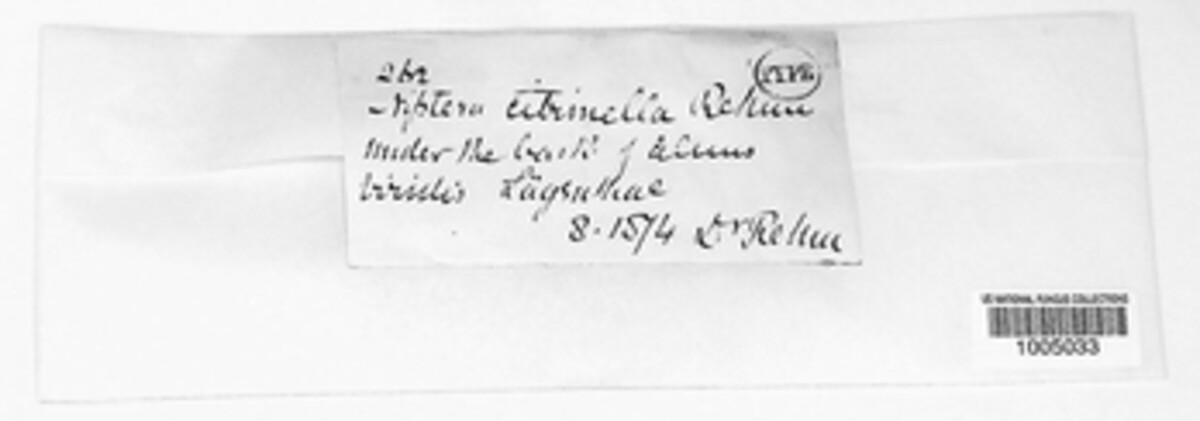 262
Niptera citrinella Rehm
under the bark of Alnus
viridis Lägenthal
8. 1874 Dr Rehm
US NATIONAL FUNGUS COLLECTIONS
1005033